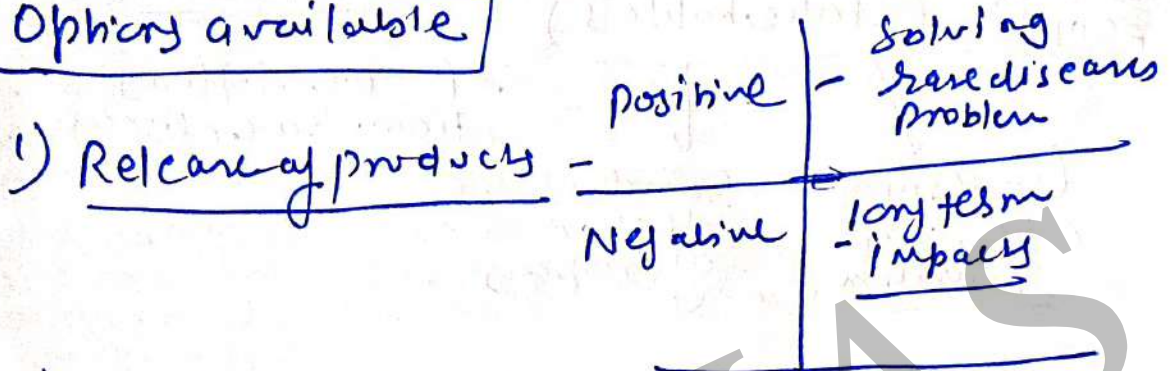 Options available
1) Release of products -
Positive - Solving rare diseases problem
Negative - long term impacts
IAS